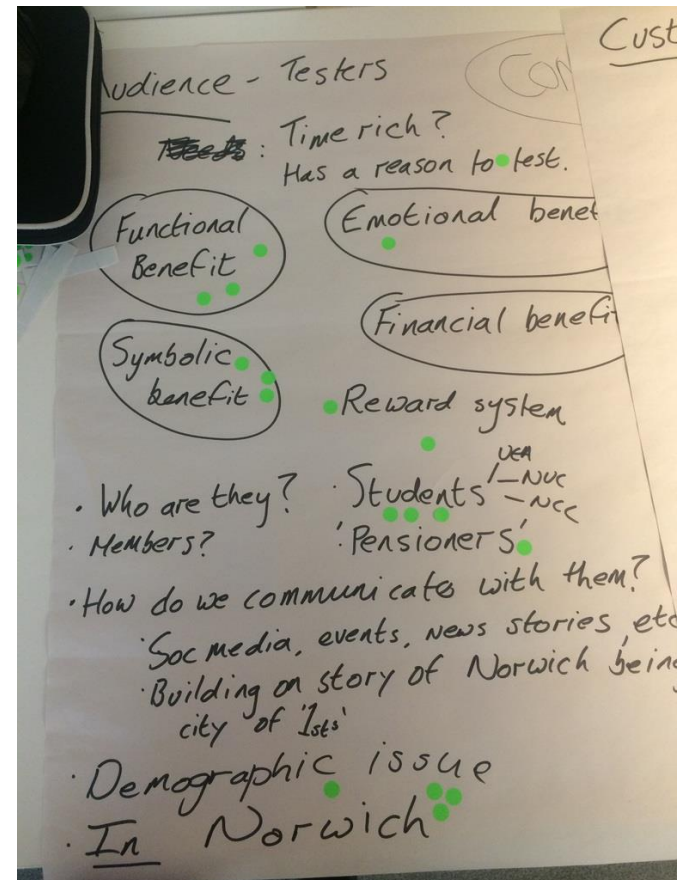 Audience - Testers
Con
Cust
: Time rich?
Has a reason to test.
Functional
Benefit
Emotional benef
Financial benefit
Symbolic
benefit
Reward system
· Who are they?
· Members?
· 'Students'
UEA
- NUC
- NCC
'Pensioners'
· How do we communicate with them?
· Soc media, events, news stories, etc
· Building on story of Norwich being
city of '1sts'
· Demographic issue
· In Norwich